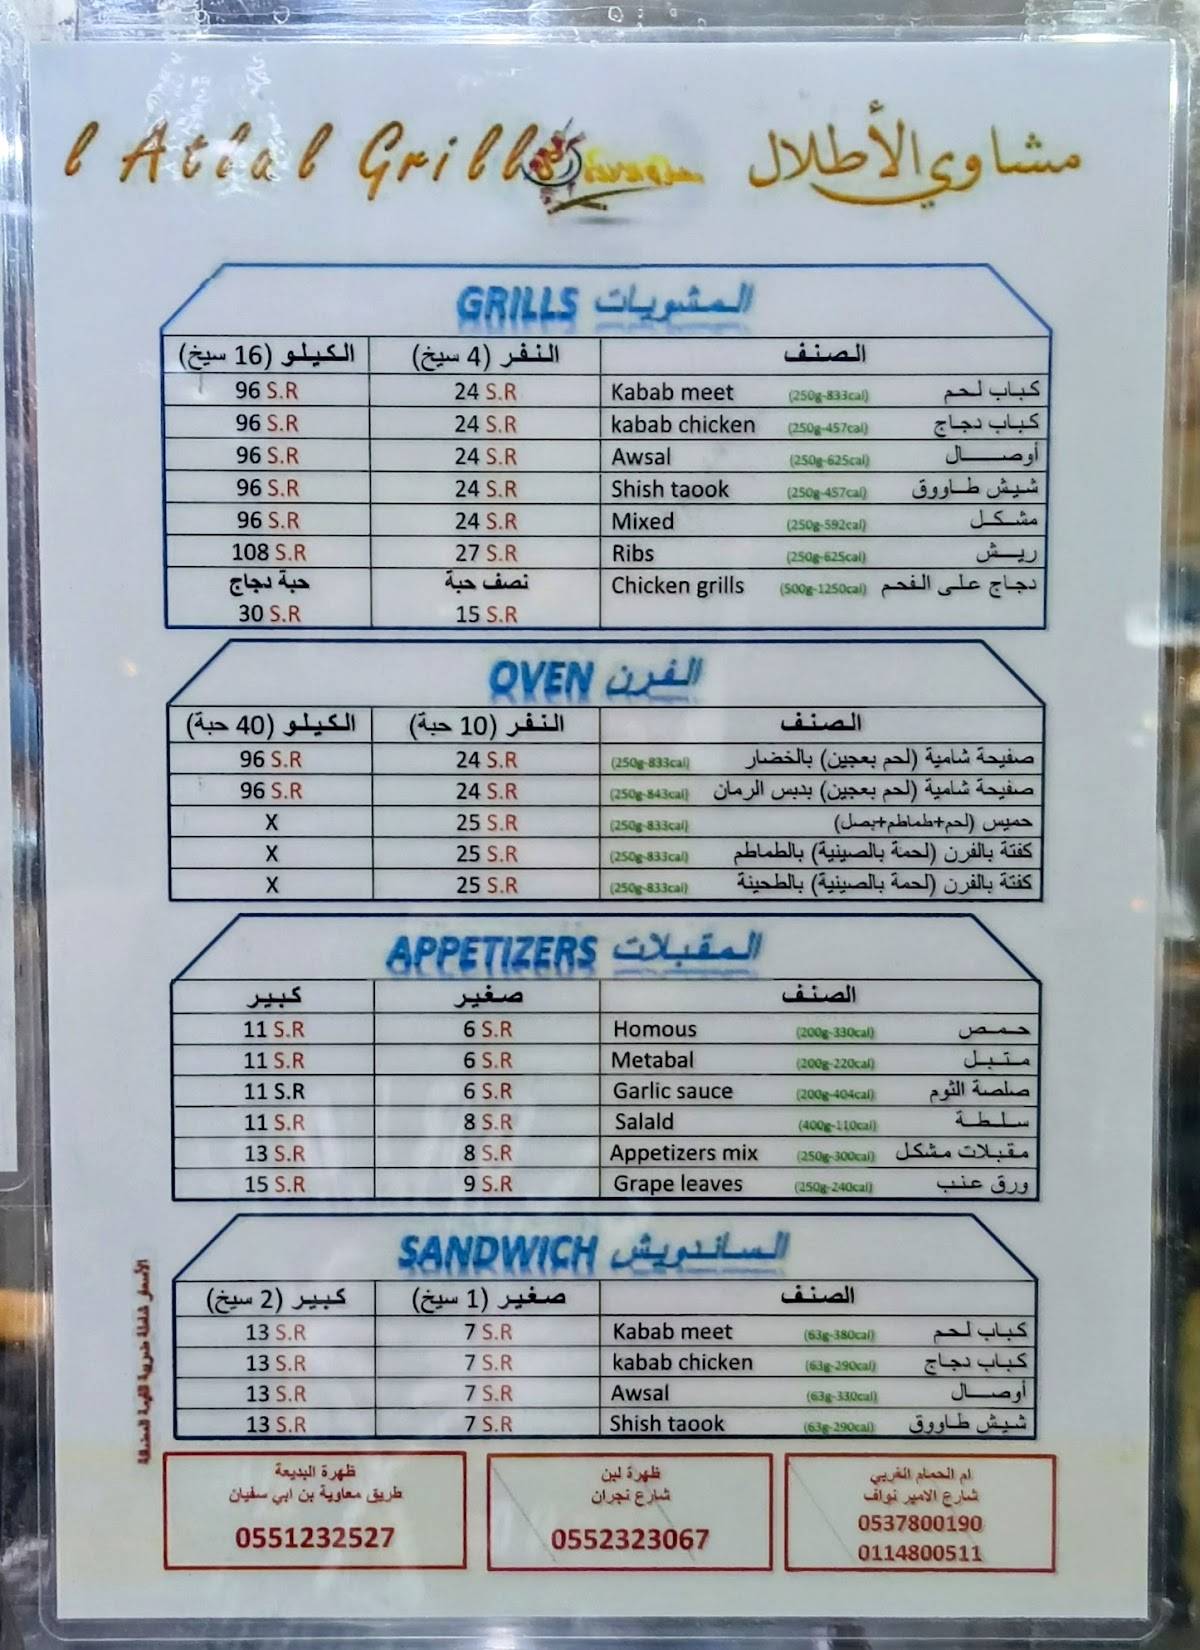 l Atlal Grill مشاوي الأطلال
GRILLS المشويات
الصنف النفر (4 سيخ) الكيلو (16 سيخ)
كباب لحم (250g-833cal) Kabab meet 24 S.R 96 S.R
كباب دجاج (250g-457cal) kabab chicken 24 S.R 96 S.R
أوصــــال (250g-625cal) Awsal 24 S.R 96 S.R
شيش طـاووق (250g-457cal) Shish taook 24 S.R 96 S.R
مشـكـل (250g-592cal) Mixed 24 S.R 96 S.R
ريــش (250g-625cal) Ribs 27 S.R 108 S.R
دجاج على الفحم (500g-1250cal) Chicken grills نصف حبة حبة دجاج
15 S.R 30 S.R
OVEN الفرن
الصنف النفر (10 حبة) الكيلو (40 حبة)
صفيحة شامية (لحم بعجين) بالخضار (250g-833cal) 24 S.R 96 S.R
صفيحة شامية (لحم بعجين) بدبس الرمان (250g-843cal) 24 S.R 96 S.R
حميس (لحم+طماطم+بصل) (250g-833cal) 25 S.R X
كفتة بالفرن (لحمة بالصينية) بالطماطم (250g-833cal) 25 S.R X
كفتة بالفرن (لحمة بالصينية) بالطحينة (250g-833cal) 25 S.R X
APPETIZERS المقبلات
الصنف صغير كبير
حـمـص (200g-330cal) Homous 6 S.R 11 S.R
متـبـل (200g-220cal) Metabal 6 S.R 11 S.R
صلصة الثوم (200g-404cal) Garlic sauce 6 S.R 11 S.R
سـلـطـة (400g-110cal) Salald 8 S.R 11 S.R
مقبلات مشكل (250g-300cal) Appetizers mix 8 S.R 13 S.R
ورق عنب (250g-240cal) Grape leaves 9 S.R 15 S.R
SANDWICH الساندويش
الصنف صغير (1 سيخ) كبير (2 سيخ)
كباب لحم (63g-380cal) Kabab meet 7 S.R 13 S.R
كباب دجاج (63g-290cal) kabab chicken 7 S.R 13 S.R
أوصــــال (63g-330cal) Awsal 7 S.R 13 S.R
شيش طـاووق (63g-290cal) Shish taook 7 S.R 13 S.R
الأسعار شاملة ضريبة القيمة المضافة
ام الحمام الغربي
شارع الامير نواف
0537800190
0114800511
ظهرة لبن
شارع نجران
0552323067
ظهرة البديعة
طريق معاوية بن ابي سفيان
0551232527